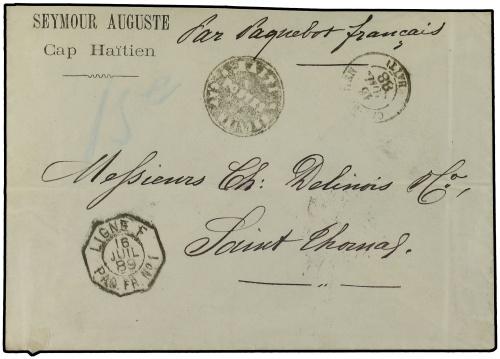 SEYMOUR AUGUSTE
Cap Haïtien
Par Paquebot français
15e
HAITI
88
Messieurs Ch: Delinois & Co,
Saint Thomas.
LIGNE F
16
JUIL
89
PAQ. FR. No 1